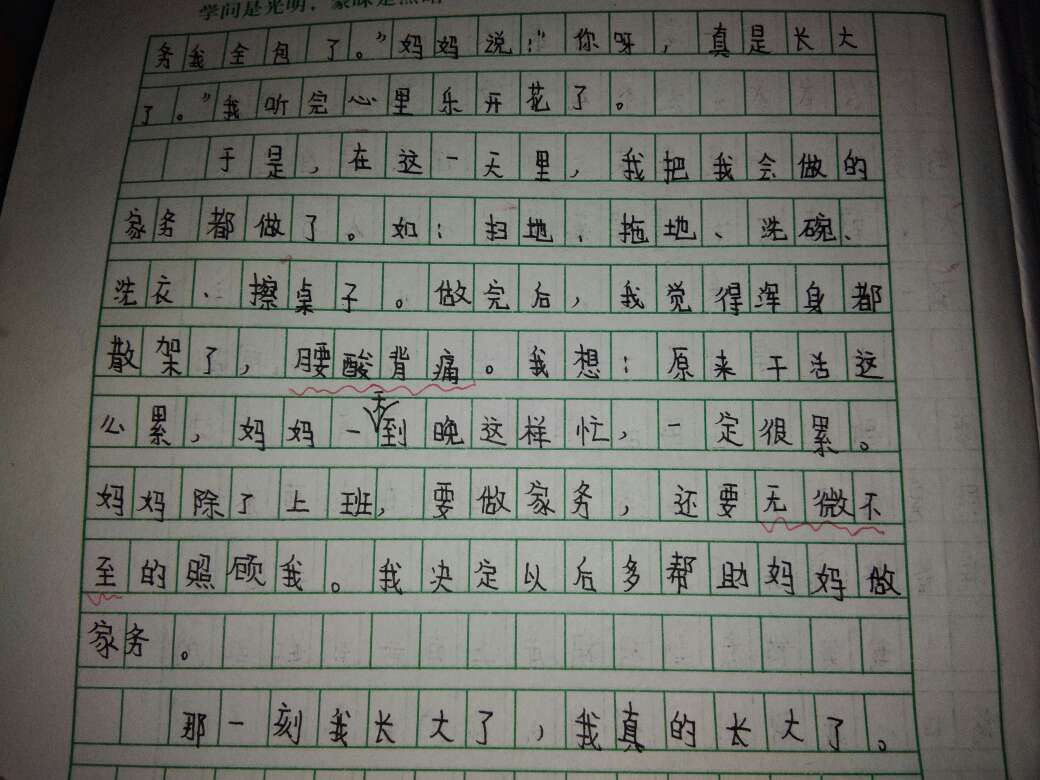 学问是光明，蒙昧是黑暗
务我全包了。”妈妈说：“你呀，真是长大
了。”我听完心里乐开花了。
于是，在这一天里，我把我会做的
家务都做了。如：扫地、拖地、洗碗、
洗衣、擦桌子。做完后，我觉得浑身都
散架了，腰酸背痛。我想：原来干活这
么累，妈妈一天到晚这样忙，一定很累。
妈妈除了上班，要做家务，还要无微不
至的照顾我。我决定以后多帮助妈妈做
家务。
那一刻我长大了，我真的长大了。